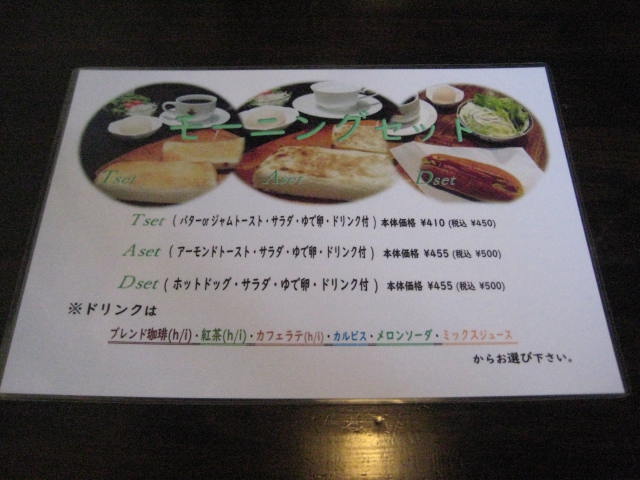 モーニングセット
Tset Aset Dset
Tset ( バターorジャムトースト・サラダ・ゆで卵・ドリンク付 ) 本体価格 ¥410 (税込 ¥450)
Aset ( アーモンドトースト・サラダ・ゆで卵・ドリンク付 ) 本体価格 ¥455 (税込 ¥500)
Dset ( ホットドッグ・サラダ・ゆで卵・ドリンク付 ) 本体価格 ¥455 (税込 ¥500)
※ドリンクは
ブレンド珈琲(h/i)・紅茶(h/i)・カフェラテ(h/i)・カルピス・メロンソーダ・ミックスジュース
からお選び下さい。